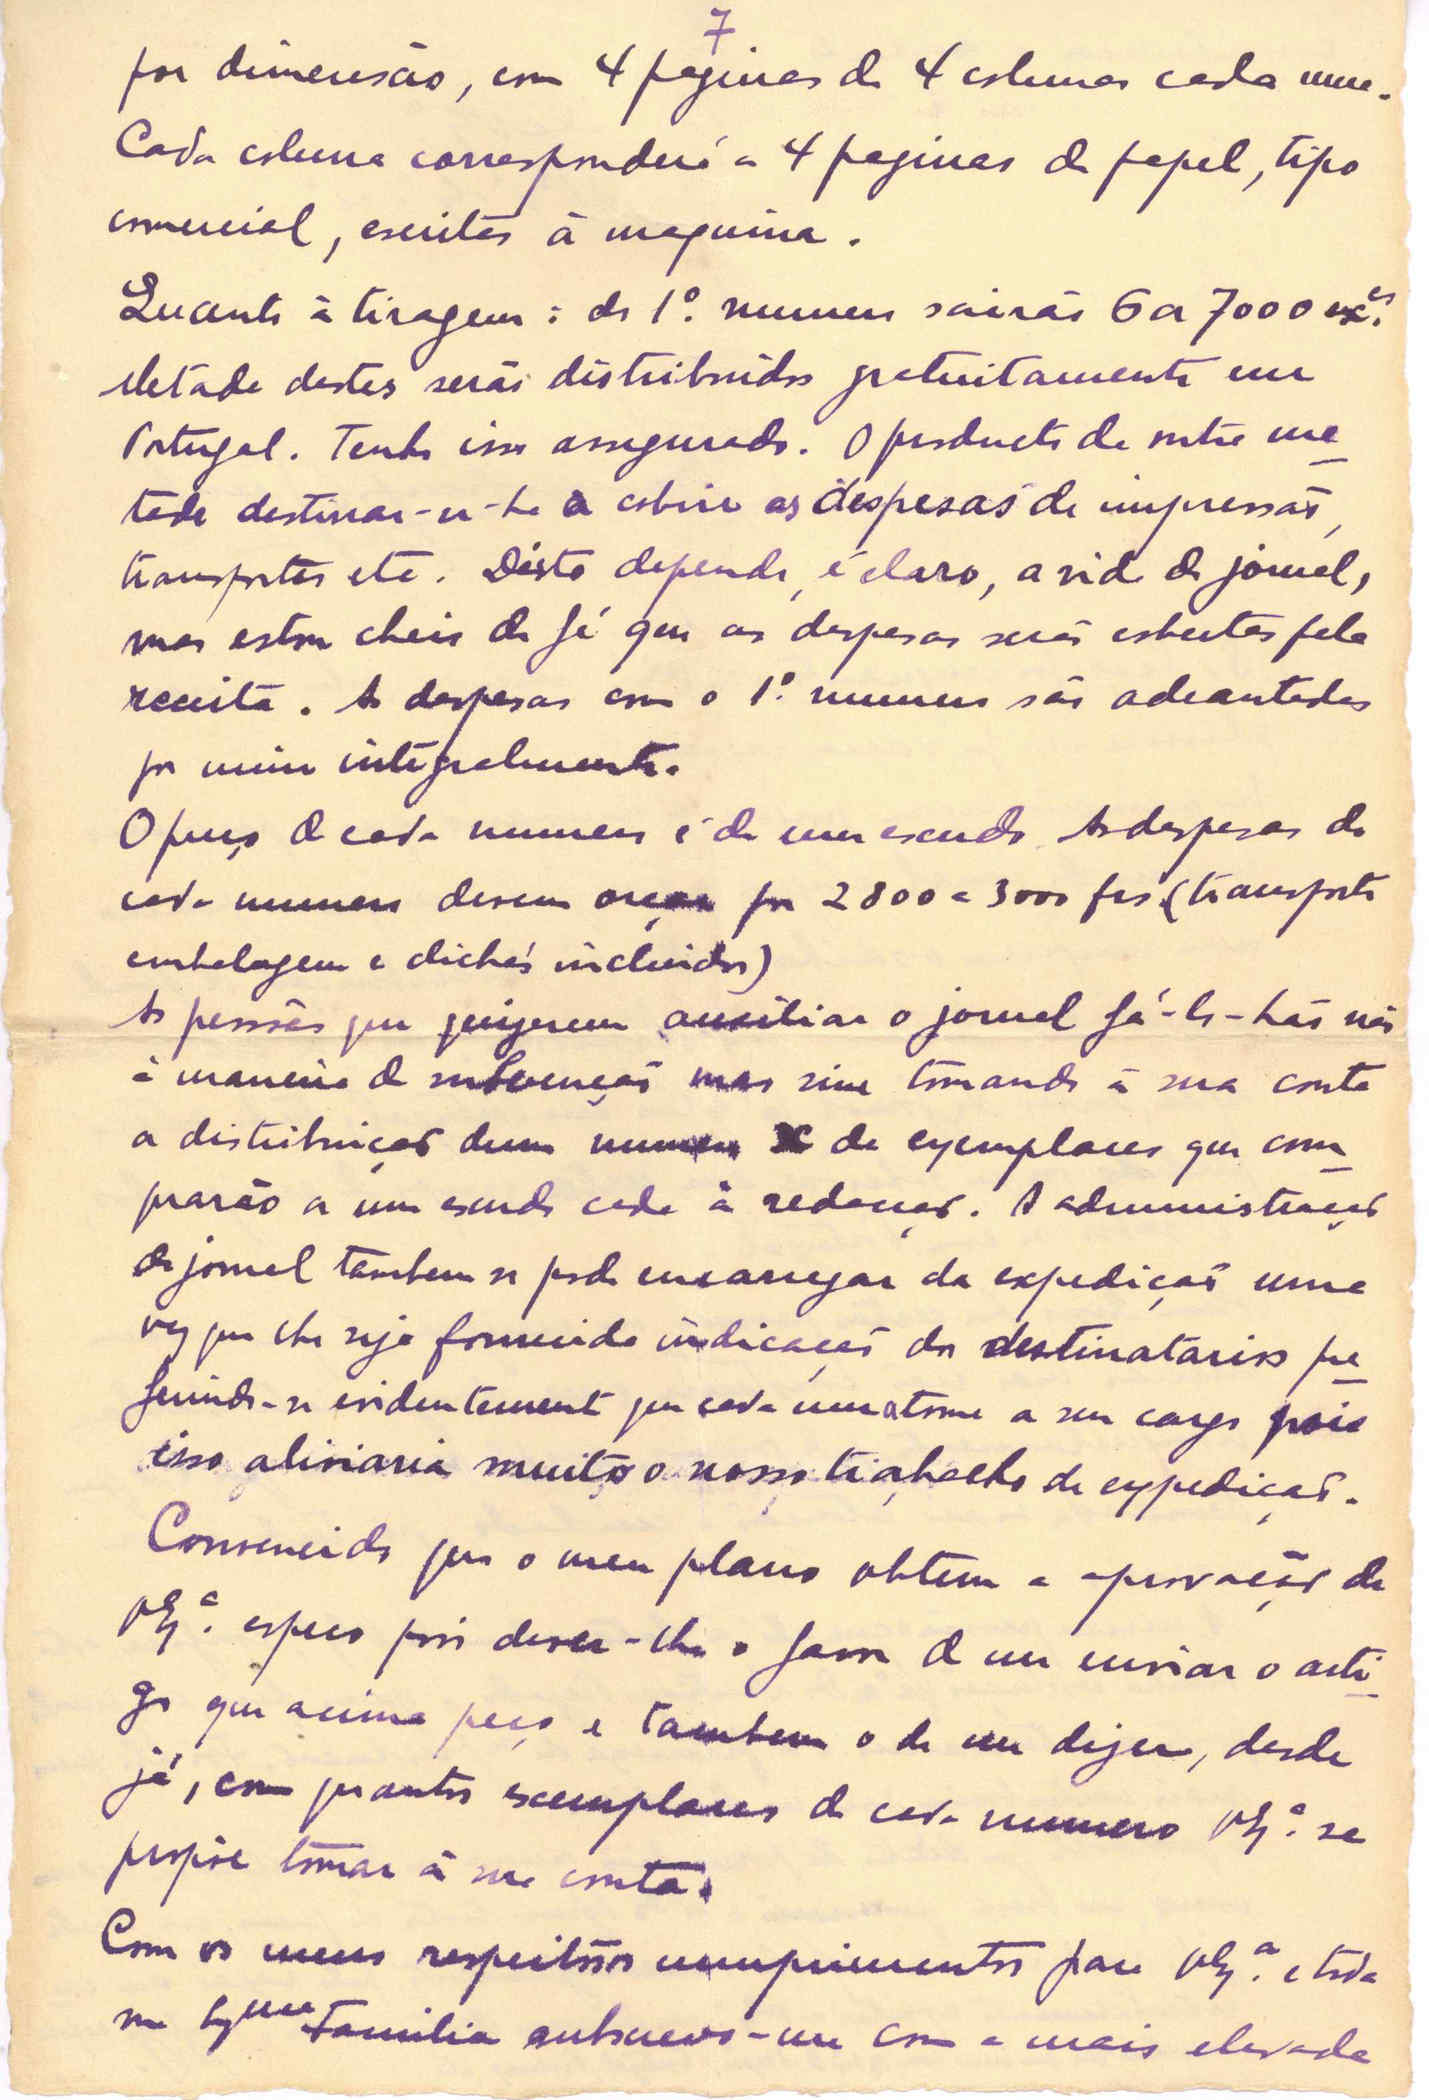 7
por dimensão, com 4 paginas de 4 colunas cada uma.
Cada coluna corresponderá a 4 paginas de papel, tipo
comercial, escritas à maquina.
Quanto à tiragem: do 1º. numero sairão 6 a 7000 exes.
Metade destes serão distribuidos gratuitamente em
Portugal. Tenho isso assegurado. O producto da outra me-
tade destinar-se-ha a cobrir as despesas de impressão,
transportes etc. Disto depende, é claro, a vida do jornal,
mas estou cheio de fé que as despesas serão cobertas pela
receita. As despesas com o 1º. numero são adeantadas
por mim integralmente.
O preço de cada numero é de um escudo. As despesas de
cada numero devem orçar por 2800 a 3000 frs (transporte
embalagem e clichés incluidos)
As pessôas que quizerem auxiliar o jornal fá-lo-hão não
à maneira de subvenção mas sim tomando à sua conta
a distribuição dum numero X de exemplares que com-
prarão a um escudo cada à redacção. A administração
do jornal tambem se pode encarregar da expedição uma
vez que lhe seja fornecida indicação dos destinatarios pre-
ferindo-se evidentemente que cada um a tome a seu cargo pois
isso aliviaria muito o nosso trabalho de expedição.
Convencido que o meu plano obtem a aprovação de
VExª. espero pois dever-lhe o favor de me enviar o arti-
go que acima peço e tambem o de me dizer, desde
já, com quantos exemplares de cada numero VExª. se
propõe tomar à sua conta.
Com os meus respeitosos cumprimentos para VExª. e toda
sua Exma Familia subscrevo-me com a mais elevada